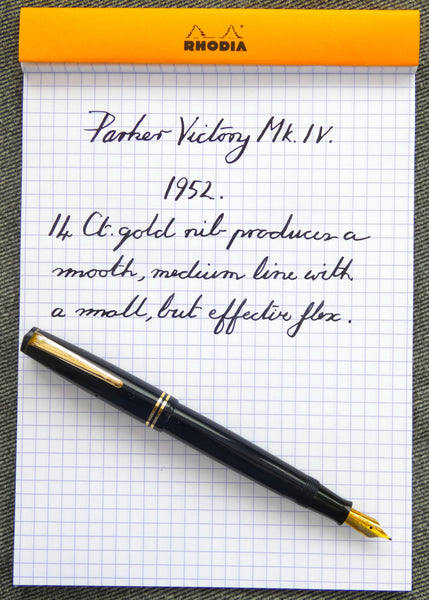 RHODIA
Parker Victory Mk. IV.
1952.
14 Ct. gold nib produces a
smooth, medium line with
a small, but effective flex.